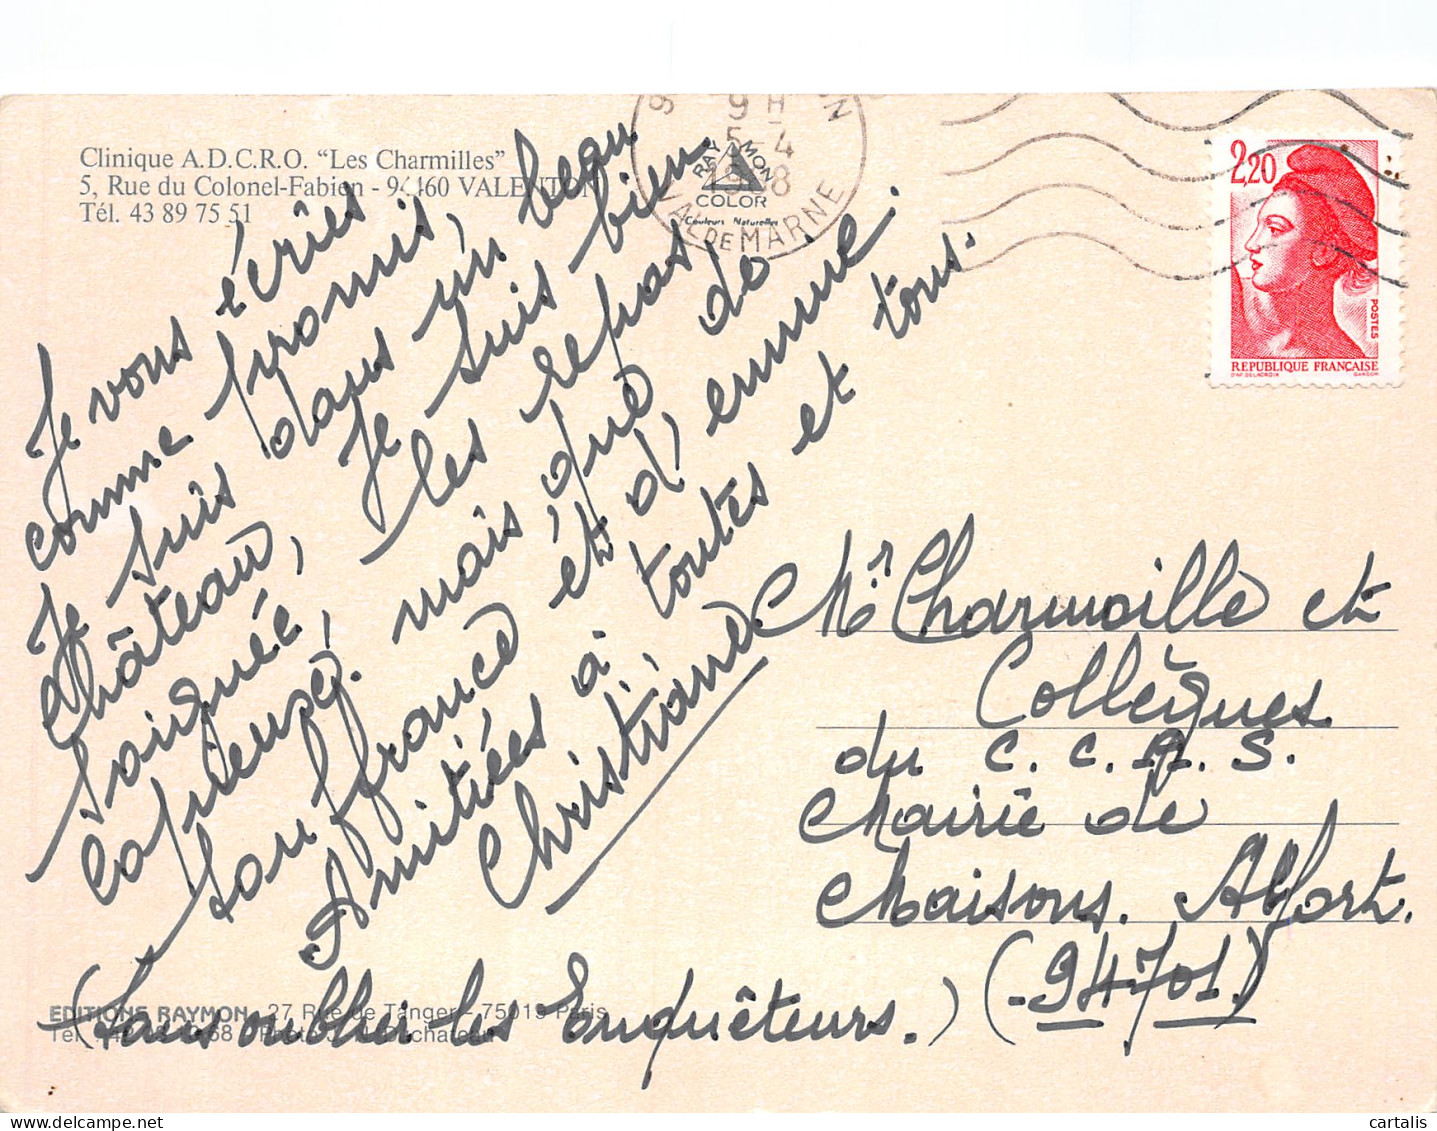 Clinique A.D.C.R.O. "Les Charmilles"
5, Rue du Colonel-Fabien - 94460 VALENTON
Tél. 43 89 75 51
9 H
5-4
1988
VAL DE MARNE
RAY MON
COLOR
Couleurs Naturelles
2,20
POSTES
REPUBLIQUE FRANÇAISE
D'AP. DELACROIX GANDON
Je vous écries
comme promis,
Je suis dans un beau
Château, Je suis bien
soignée, les repas
copieuse. mais que de
souffrance et d'ennuie.
Amitiées à toutes et tous.
Christiane
(sans oublier les Enquêteurs.)
Mr Charmoille et
Collègues
du C.C.A.S.
Mairie de
Maisons. Alfort.
(-94701.)
EDITIONS RAYMON - 27 Rue de Tanger - 75019 Paris
cartalis